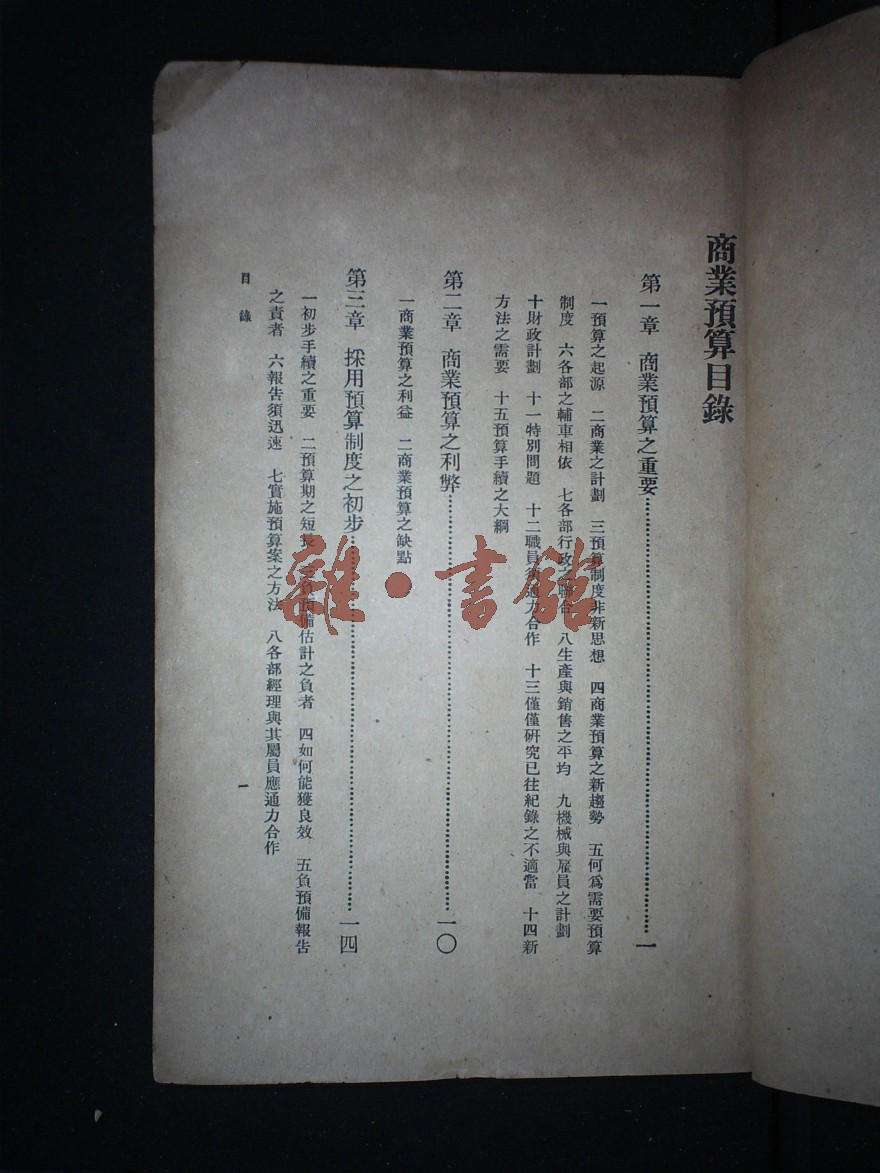 商業預算目錄
第一章　商業預算之重要……一
一預算之起源　二商業之計劃　三預算制度非新思想　四商業預算之新趨勢　五何爲需要預算
制度　六各部之輔車相依　七各部行政之聯合　八生產與銷售之平均　九機械與雇員之計劃
十財政計劃　十一特別問題　十二職員須通力合作　十三僅僅研究已往紀錄之不適當　十四新
方法之需要　十五預算手續之大綱
第二章　商業預算之利弊……一〇
一商業預算之利益　二商業預算之缺點
第三章　採用預算制度之初步……一四
一初步手續之重要　二預算期之短長　三負預備估計之負者　四如何能獲良效　五負預備報告
之責者　六報告須迅速　七實施預算案之方法　八各部經理與其屬員應通力合作
目錄
一
雜·書館